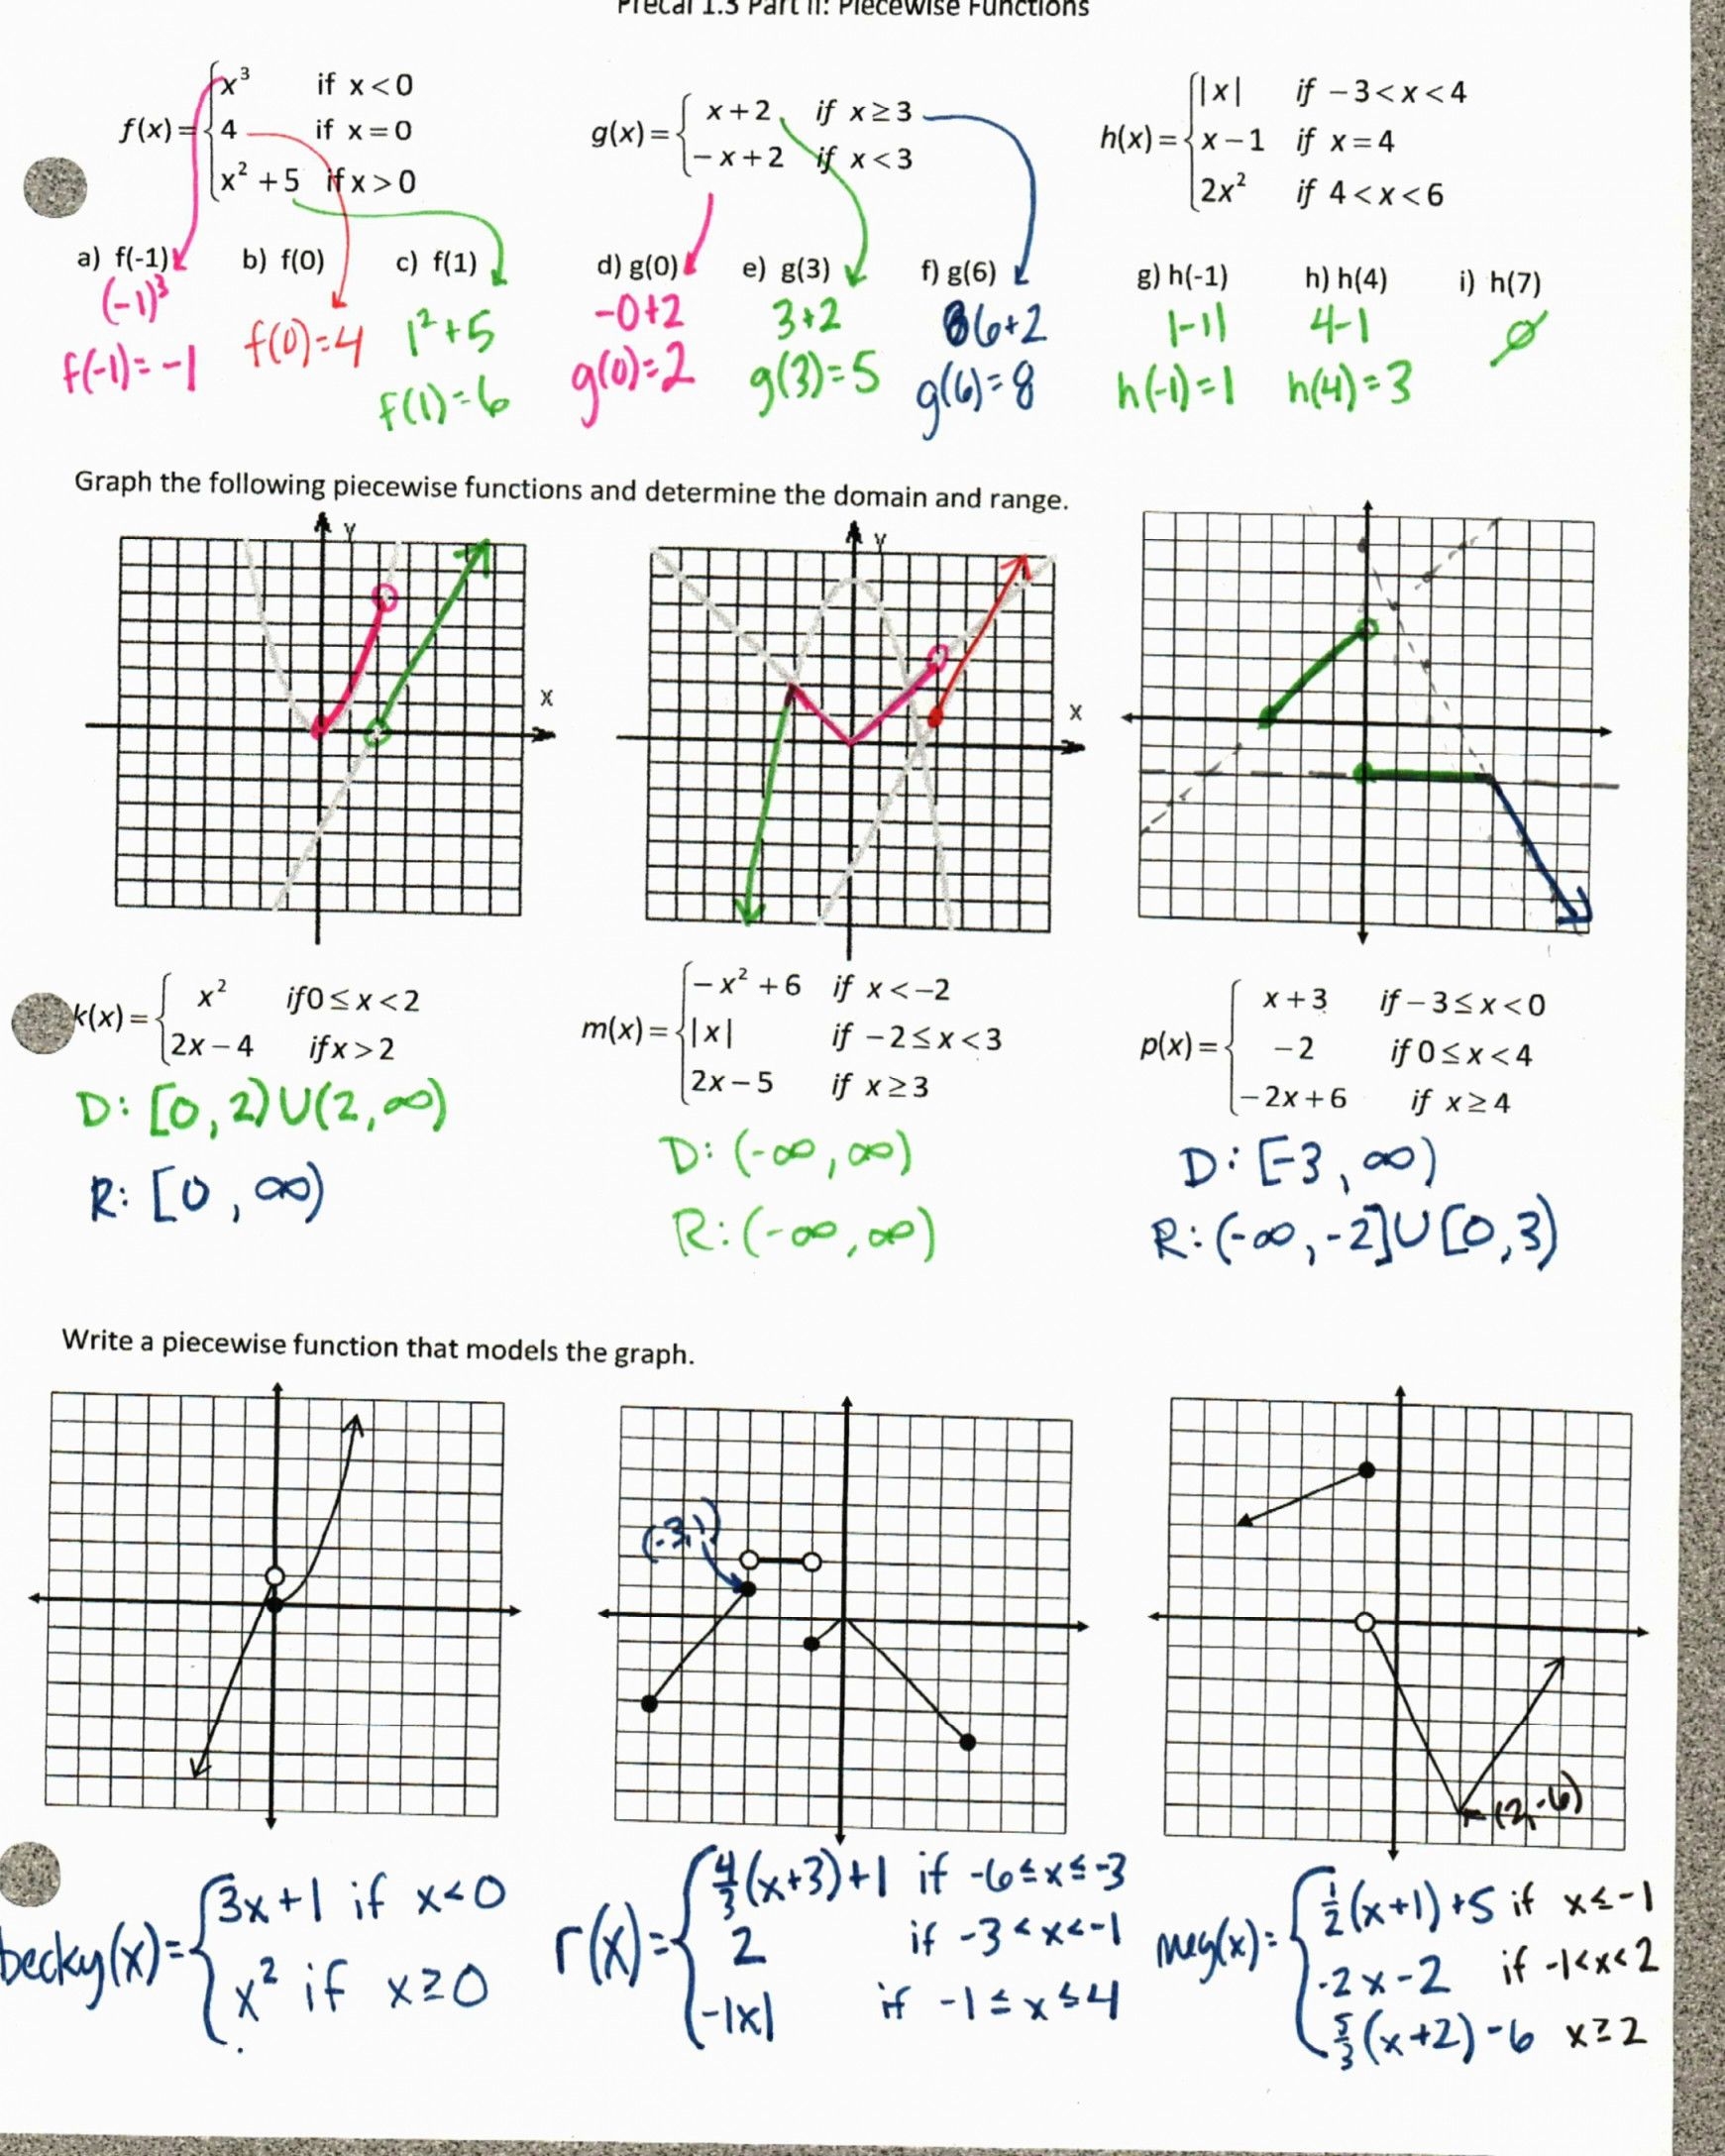 Precal 1.3 Part II: Piecewise Functions
f(x) = { x³ if x < 0
4 if x = 0
x² + 5 if x > 0
g(x) = { x + 2 if x ≥ 3
− x + 2 if x < 3
h(x) = { |x| if − 3 < x < 4
x − 1 if x = 4
2x² if 4 < x < 6
a) f(-1) b) f(0) c) f(1) d) g(0) e) g(3) f) g(6) g) h(-1) h) h(4) i) h(7)
(-1)³ f(0)=4 1²+5 -0+2 3+2 6+2 |-1| 4-1 ∅
f(-1)= -1 f(1)=6 g(0)=2 g(3)=5 g(6)=8 h(-1)=1 h(4)=3
Graph the following piecewise functions and determine the domain and range.
Y Y
X X
k(x) = { x² if 0 ≤ x < 2
2x − 4 if x > 2
D: [0, 2) U (2, ∞)
R: [0, ∞)
m(x) = { − x² + 6 if x < −2
|x| if − 2 ≤ x < 3
2x − 5 if x ≥ 3
D: (-∞, ∞)
R: (-∞, ∞)
p(x) = { x + 3 if − 3 ≤ x < 0
− 2 if 0 ≤ x < 4
− 2x + 6 if x ≥ 4
D: [-3, ∞)
R: (-∞, -2] U [0, 3)
Write a piecewise function that models the graph.
(-3,1)
(2,-6)
becky(x) = { 3x+1 if x<0
x² if x≥0
r(x) = { 4/3(x+3)+1 if -6≤x≤-3
2 if -3<x<-1
-|x| if -1≤x≤4
meg(x) = { 1/2(x+1)+5 if x≤-1
-2x-2 if -1<x<2
5/3(x+2)-6 x≥2